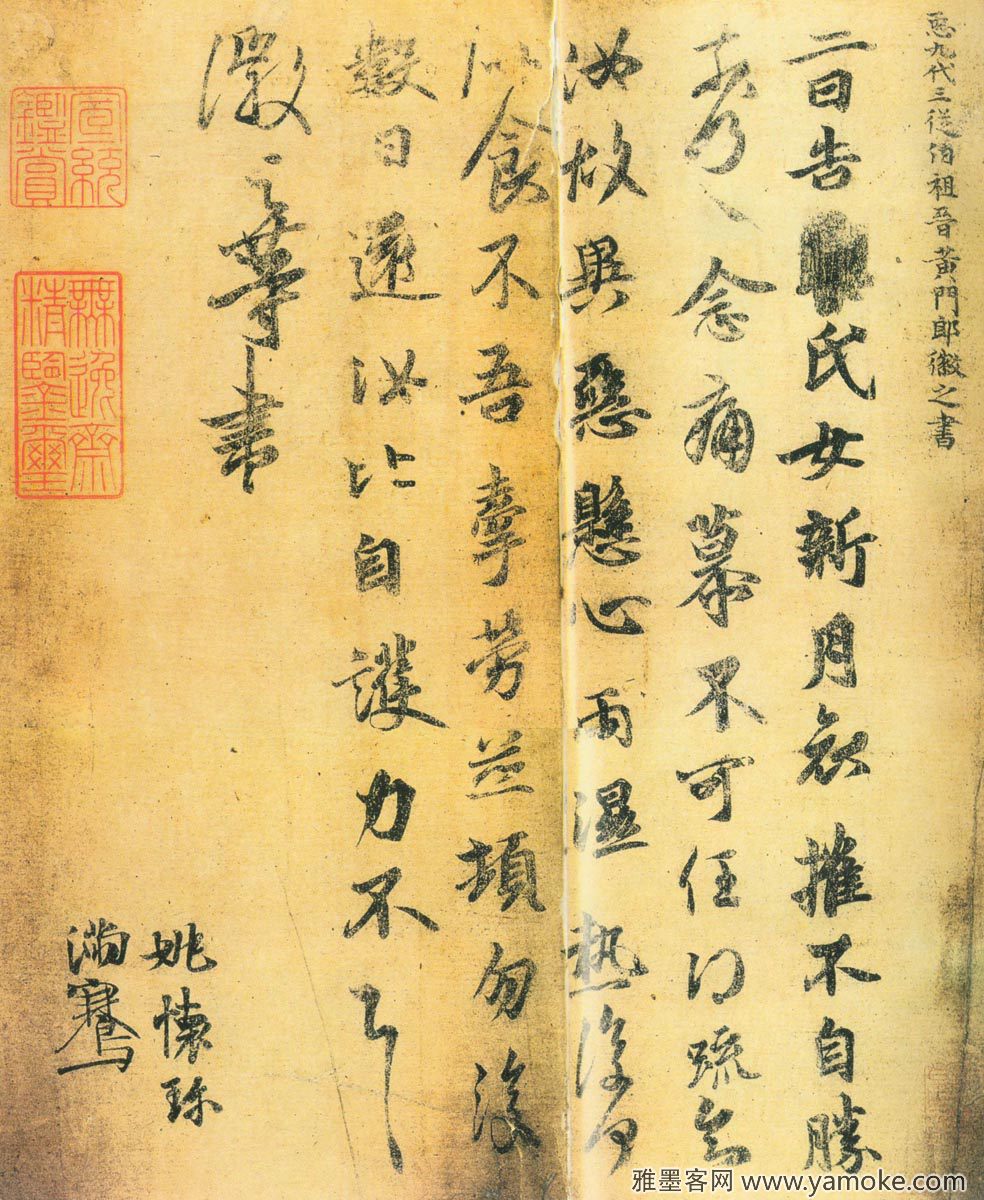 𢘑九代三從伯祖晉黃門郎徽之書
二日告氏女新月哀摧不自勝
奈何〻念痛慕不可任得疏知
汝故異惡懸心雨濕熱復何
似食不吾牽勞並頓勿復
數日還汝比自護力不具
徽之等書
姚懷珍
滿騫
宣統
鑑賞
無逸齋
精鑒璽
雅墨客网 www.yamoke.com